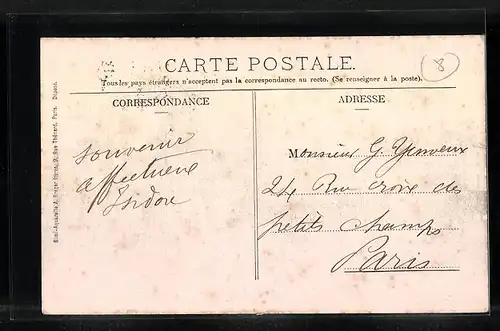 CARTE POSTALE.
Tous les pays étrangers n'acceptent pas la correspondance au recto. (Se renseigner à la poste).
CORRESPONDANCE
ADRESSE
souvenir
affectueux
Isidore
Monsieur G.
24 Rue croix des
petits champs
Paris
8